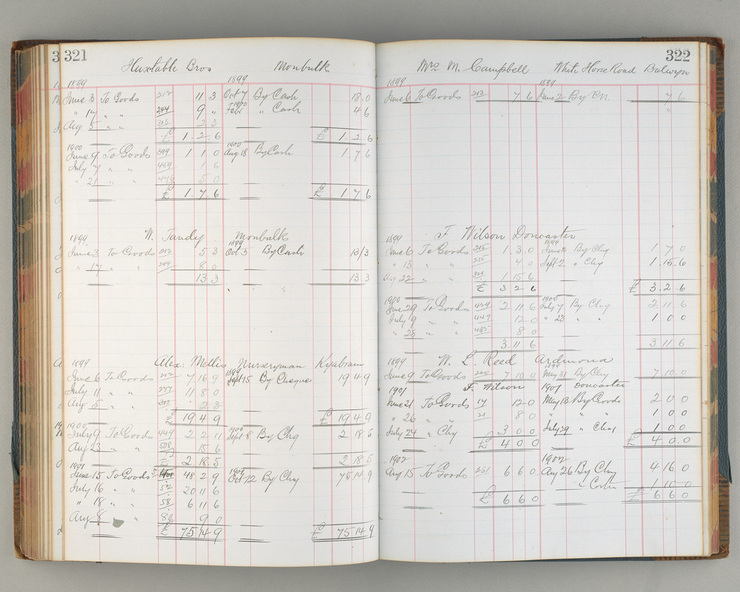 321
Huxtable Bros Monbulk
1899 1899
June 3 To Goods 212 11 3 Oct 7 By Cash 18 0
" 17 " " 244 9 " Cash 4 6
Aug 5 " "
£ 1 2 6 £ 1 2 6
1900 1900
June 9 To Goods 1 1 0 Aug 18 By Cash 1 7 6
July 7 " " 1 6
" 21 " " 5 0
£ 1 7 6 £ 1 7 6
W. Tandy Monbulk
1899 1899
June 3 To Goods 212 5 3 Oct 3 By Cash 13/3
" 17 " " 8 0
13 3 13 3
Alex. Mellis Nurseryman Kyabram
1899
June 6 To Goods 7 16 9 Sept 15 By Cheque 19 4 9
July 11 " " 11 8 0
Aug 5 " "
£ 19 4 9 £ 19 4 9
1900 1900
July 9 To Goods 449 2 2 11 Sept 8 By Chq 2 18 5
Aug 23 " " 15 6
£ 2 18 5 2 18 5
1901
June 15 To Goods 48 2 9 Oct 12 By Chq 75 14 9
July 16 " " 20 11 6
" 18 " " 58 6 11 6
Aug 8 " " 86 9 0
£ 75 14 9 £ 75 14 9
322
Mrs M. Campbell White Horse Road Balwyn
1899 1899
June 6 To Goods 212 7 6 June 2 By 7 6
F Wilson Doncaster
1899 1899
June 6 To Goods 215 1 3 0 By Chq 1 7 0
" 13 " " 4 0 Sept 2 " Chq 1 15 6
Aug 22 " " 1 15 6
£ 3 2 6 £ 3 2 6
1900 1900
June 29 To Goods 429 2 11 6 July 7 By Chq 2 11 6
July 9 " " 449 12 0 " 23 " " 1 0 0
" 28 " " 485 8 0
3 11 6 3 11 6
W. L. Reed Ardmona
1899 1899
June 9 To Goods 7 10 0 May 31 By Chq 7 10 0
F. Wilson Doncaster
1901 1901
June 21 To Goods 17 12 0 May 18 By Goods 2 0 0
" 26 " " 8 0 1 0 0
July 24 " Chq 3 0 0 July 29 " Chq 1 0 0
£ 4 0 0 £ 4 0 0
1902 1902
Aug 15 To Goods 6 6 0 Aug 26 By Chq 4 16 0
1 10 0
£ 6 6 0 £ 6 6 0